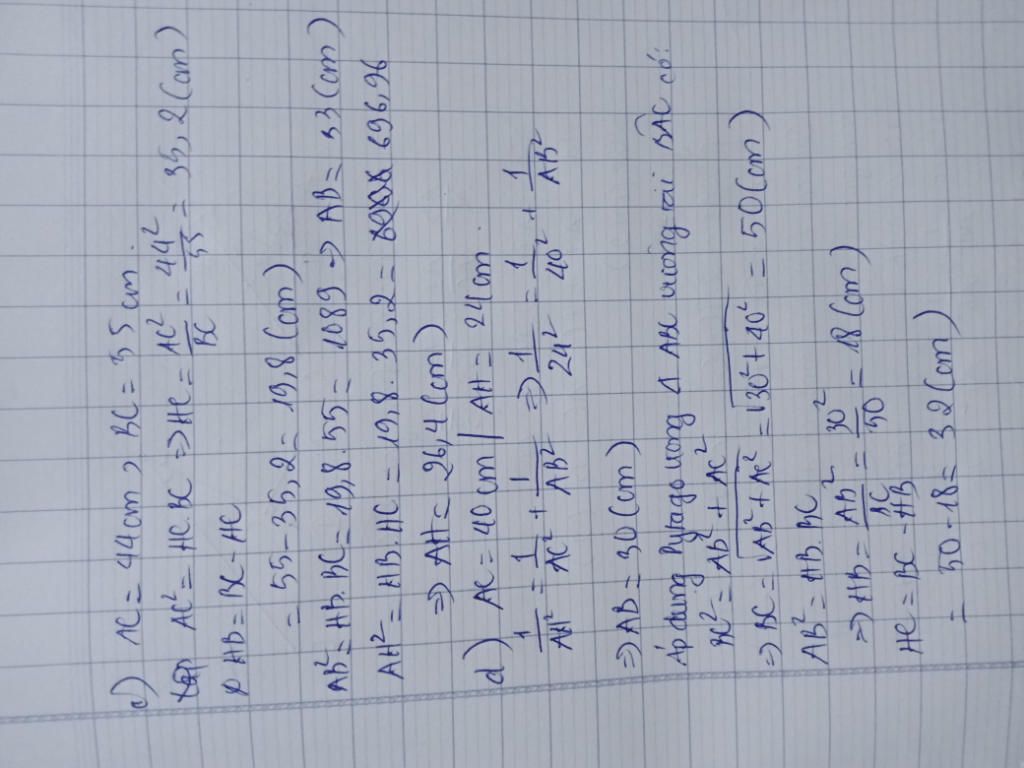 c) AC = 44cm, BC = 55 cm
AC² = HC.BC => HC = AC²/BC = 44²/55 = 35,2 (cm)
HB = BC - HC
= 55 - 35,2 = 19,8 (cm)
AB² = HB.BC = 19,8.55 = 1089 => AB = 33 (cm)
AH² = HB.HC = 19,8.35,2 = 696,96
=> AH = 26,4 (cm)
d) AC = 40 cm | AH = 24cm.
1/AH² = 1/AC² + 1/AB² => 1/24² = 1/40² + 1/AB²
=> AB = 30 (cm)
Áp dụng Pytago trong Δ ABC vuông tại BAC có:
BC² = AB² + AC²
=> BC = √AB² + AC² = √30² + 40² = 50 (cm)
AB² = HB.BC
=> HB = AB²/BC = 30²/50 = 18 (cm)
HC = BC - HB
= 50 - 18 = 32 (cm)